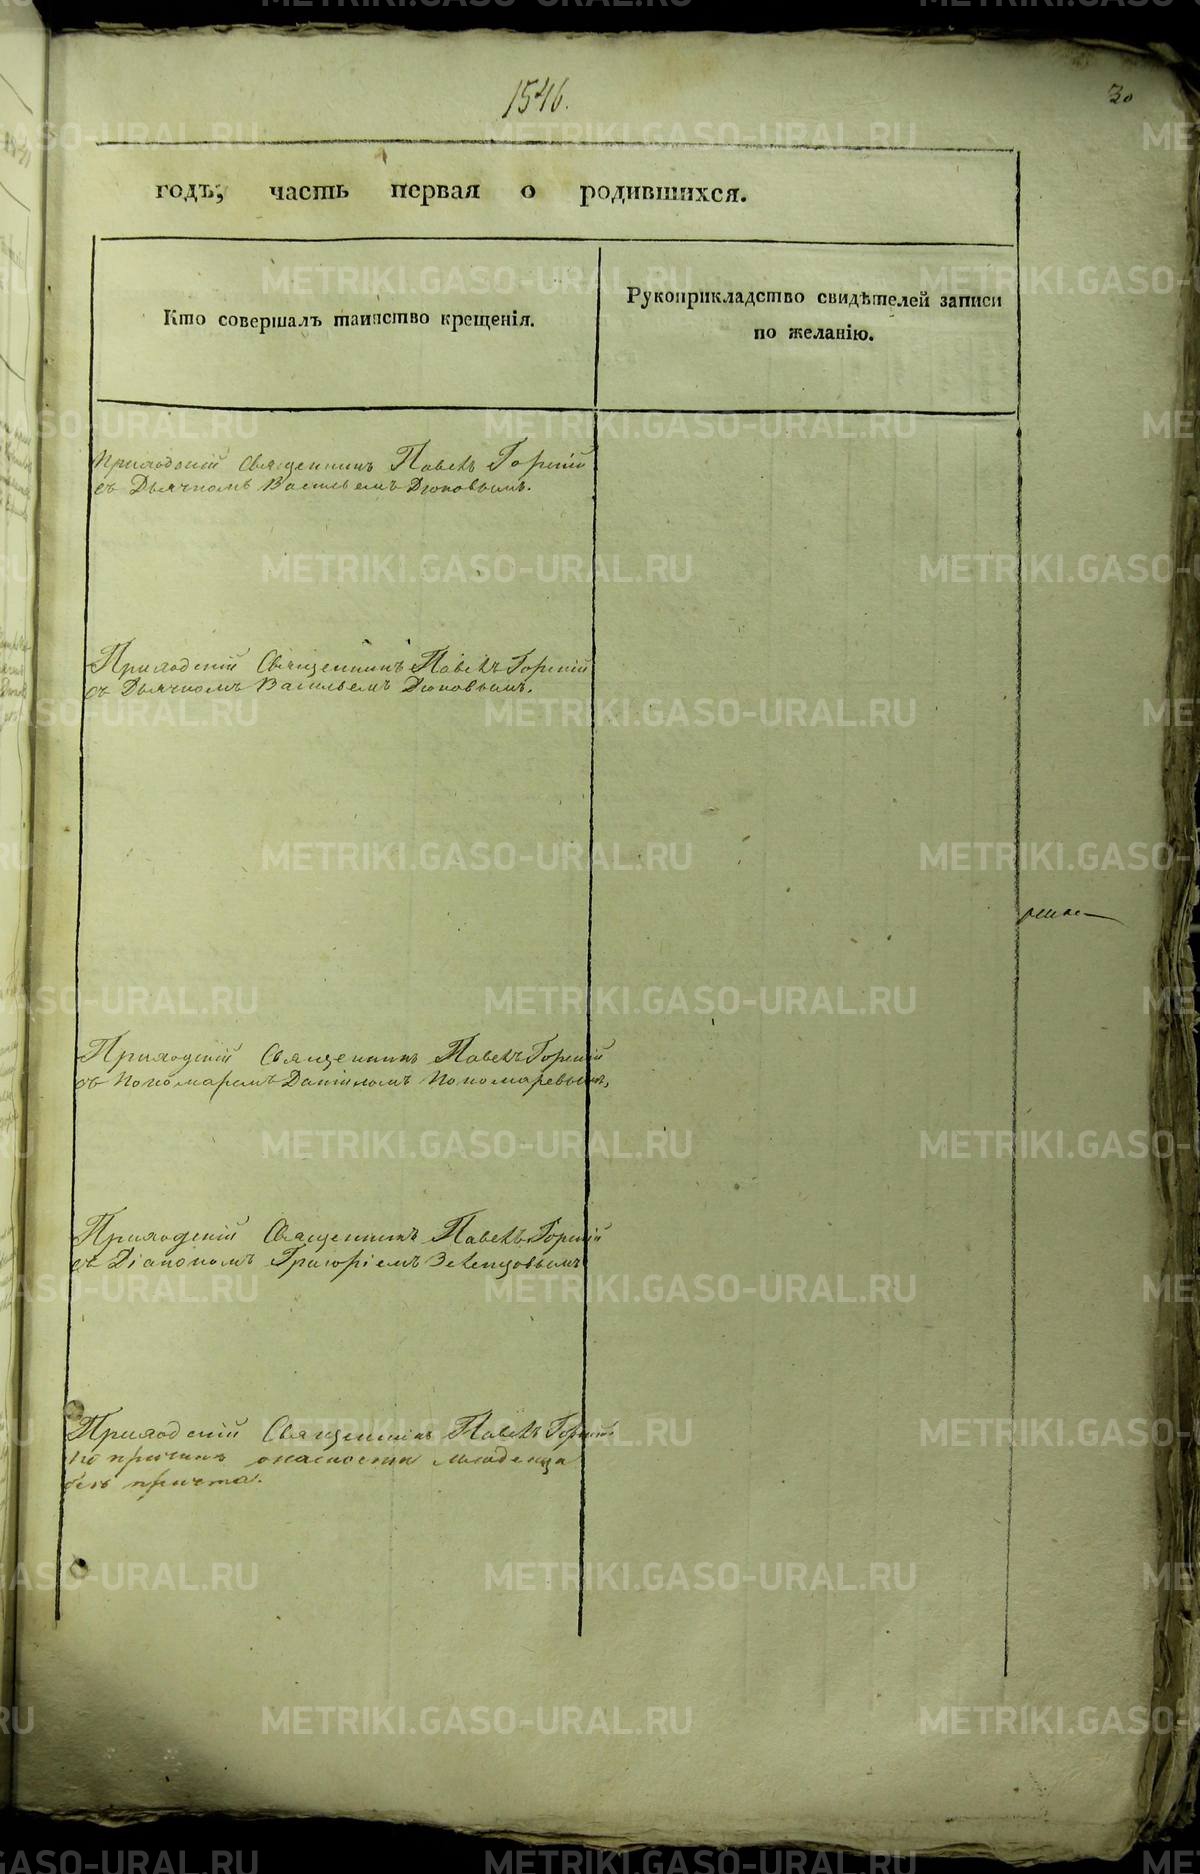 1546.
30
годъ, часть первая о родившихся.
Кто совершалъ таинство крещенія.
Рукоприкладство свидѣтелей записи
по желанію.
Приходскій Священникъ Павелъ Горскій
съ Дьячкомъ Васильемъ Дюковымъ.
Приходскій Священникъ Павелъ Горскій
съ Дьячкомъ Васильемъ Дюковымъ.
Приходскій Священникъ Павелъ Горскій
съ Пономаремъ Даніломъ Пономаревымъ,
Приходскій Священникъ Павелъ Горскій
съ Діакономъ Григоріемъ Зеленцовымъ
Приходскій Священникъ Павелъ Горскій
по причинѣ опасности младенца
безъ причта.
METRIKI.GASO-URAL.RU